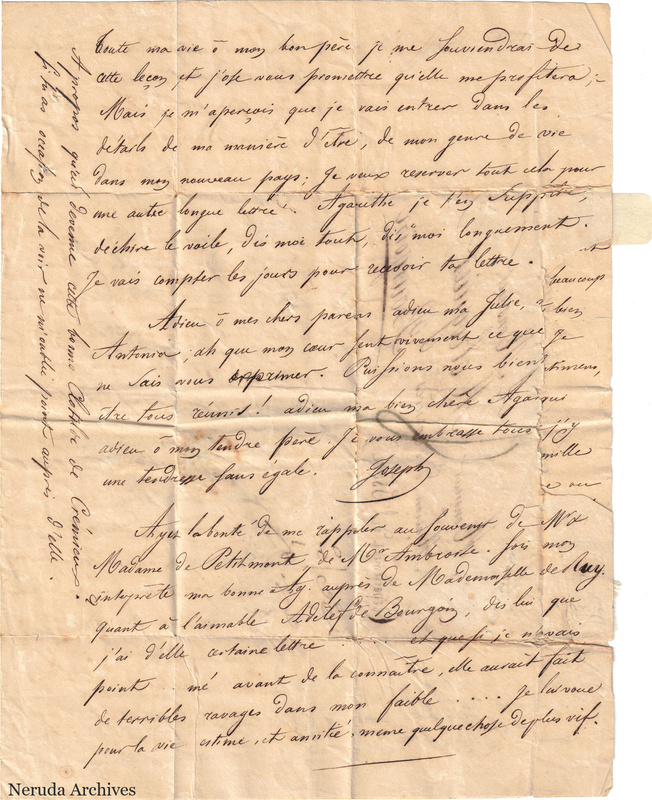 toute ma vie ô mon bon père je me souviendrai de
cette leçon et j'ose vous promettre qu'elle me profitera ;
Mais je m'aperçois que je vais entrer dans les
détails de ma manière d'être, de mon genre de vie
dans mon nouveau pays ; Je veux reserver tout cela pour
une autre longue lettre. Agarithe je t'en supplie,
déchire le voile, dis moi tout, dis moi longuement.
Je vais compter les jours pour recevoir ta lettre.
Adieu ô mes chers parens adieu ma Julie,
Antonia ; ah que mon cœur sent vivement ce que je
ne sais vous exprimer. Puissions nous bientôt
être tous réunis ! adieu ma bien chère
adieu ô mon tendre père. Je vous embrasse tous
une tendresse sans egale. Joseph
beaucoup
bien
timens,
j'y
mille
e ou
Ayez la bonté de me rappeler au souvenir de Mr &
Madame de Petitmont, de Mr Ambroise. Sois mon
interprête ma bonne auprès de Mademoiselle de
quant à l'aimable de Bourgoin, dis lui que
j'ai d'elle certaine lettre . . . . et que si je n'avais
point . . mé avant de la connaître, elle aurait fait
de terribles ravages dans mon faible . . . . Je lui voue
pour la vie estime, et amitié, meme quelque chose de plus vif.
A propos qu'est devenue cette bonne Clotilde de Crémieux.
si tu as occasion de la voir ne m'oublie point auprès d'elle.
Neruda Archives